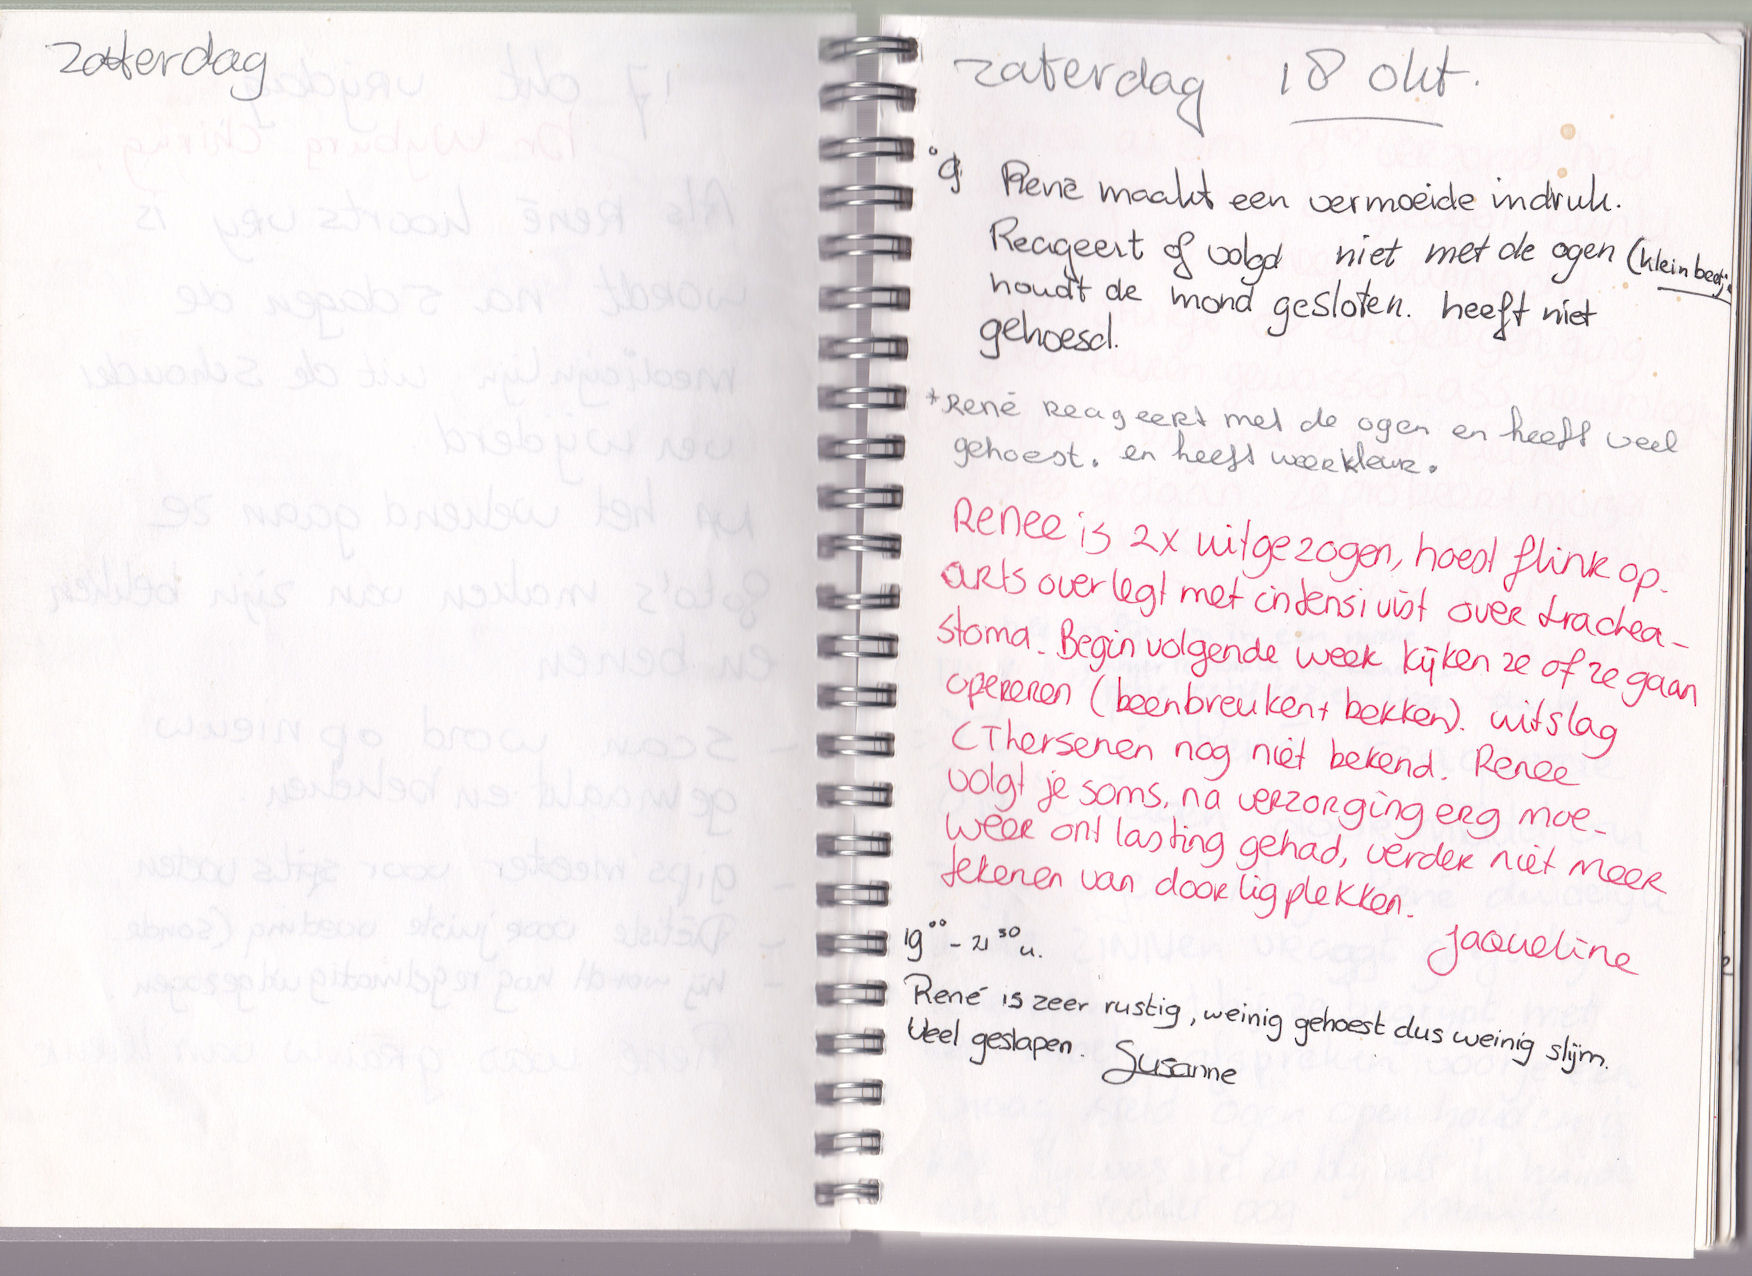 zaterdag
zaterdag 18 okt.
René maakt een vermoeide indruk.
Reageert of volgd niet met de ogen (klein beetj
houdt de mond gesloten. heeft niet
gehoesd.
*René Reageert met de ogen en heeft veel
gehoest. en heeft weer kleur.
Renee is 2x uitgezogen, hoest flink op.
arts overlegt met intensivist over trachea-
stoma. Begin volgende week kijken ze of ze gaan
opereren (beenbreuken+ bekken). uitslag
CT hersenen nog niet bekend. Renee
volgt je soms, na verzorging erg moe-
weer ontlasting gehad, verder niet meer
tekenen van doorligplekken.
Jaqueline
19⁰⁰ - 21³⁰ u.
René is zeer rustig, weinig gehoest dus weinig slijm.
Veel geslapen. Susanne